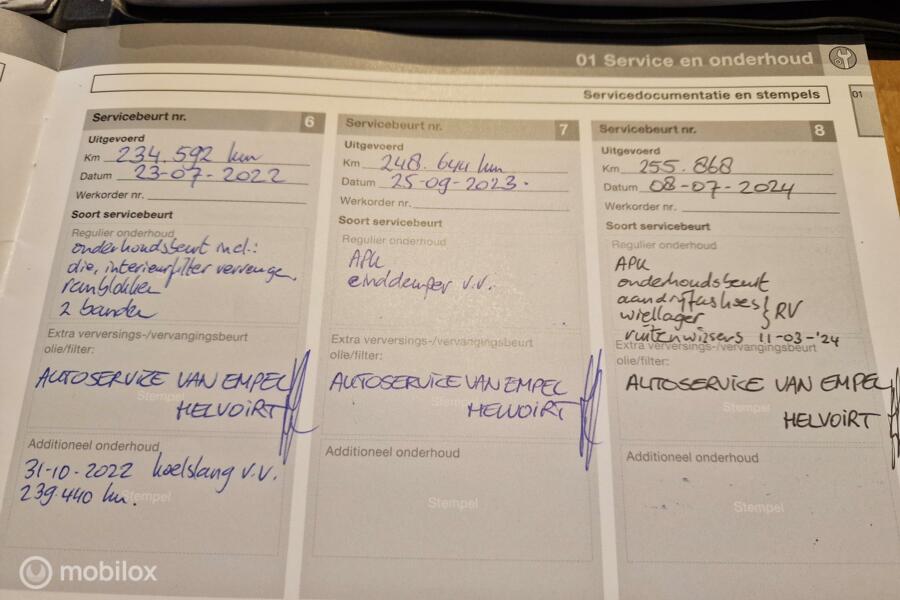 01 Service en onderhoud
Servicedocumentatie en stempels
01
Servicebeurt nr. 6
Uitgevoerd
Km 234.592 km
Datum 23-07-2022
Werkorder nr.
Soort servicebeurt
Regulier onderhoud
onderhoudsbeurt incl.:
olie, interieurfilter
remblokken
2 banden
Extra verversings-/vervangingsbeurt
olie/filter:
Stempel
AUTOSERVICE VAN EMPEL
HELVOIRT
Additioneel onderhoud
31-10-2022 koelslang v.v.
239.440 km.
Stempel
Servicebeurt nr. 7
Uitgevoerd
Km 248.644 km
Datum 25-09-2023.
Werkorder nr.
Soort servicebeurt
Regulier onderhoud
APK
einddemper v.v.
Extra verversings-/vervangingsbeurt
olie/filter:
AUTOSERVICE VAN EMPEL
Stempel
HELVOIRT
Additioneel onderhoud
Stempel
Servicebeurt nr. 8
Uitgevoerd
Km 255.868
Datum 08-07-2024
Werkorder nr.
Soort servicebeurt
Regulier onderhoud
APK
onderhoudsbeurt
aandrijfashoes } RV
wiellager
ruitenwissers 11-03-'24
Extra verversings-/vervangingsbeurt
olie/filter:
AUTOSERVICE VAN EMPEL
Stempel
HELVOIRT
Additioneel onderhoud
Stempel
mobilox